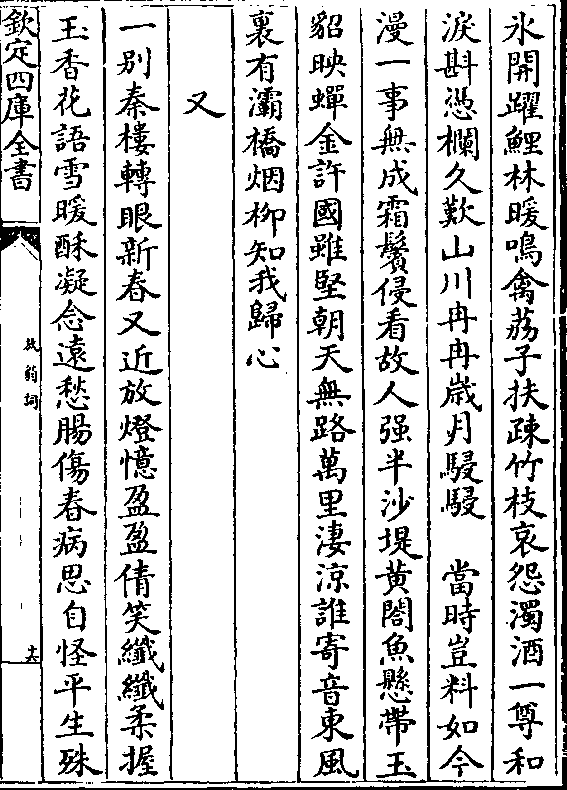 氷開躍鯉林暖鳴禽荔子扶疎竹枝哀怨濁酒一尊和
淚斟憑欄久歎山川冉冉歲月駸駸　當時豈料如今
漫一事無成霜鬢侵看故人强半沙堤黄閤魚懸帶玉
貂映蟬金許國雖堅朝天無路萬里淒涼誰寄音東風
裏有灞橋烟柳知我歸心
又
一别秦樓轉眼新春又近放燈憶盈盈倩笑纖纖柔握
玉香花語雪暖酥凝念遠愁腸傷春病思自怪平生殊
欽定四庫全書
放翁詞
十六